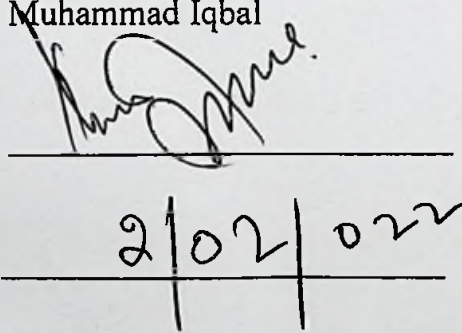 Muhammad Iqbal
2/02/022